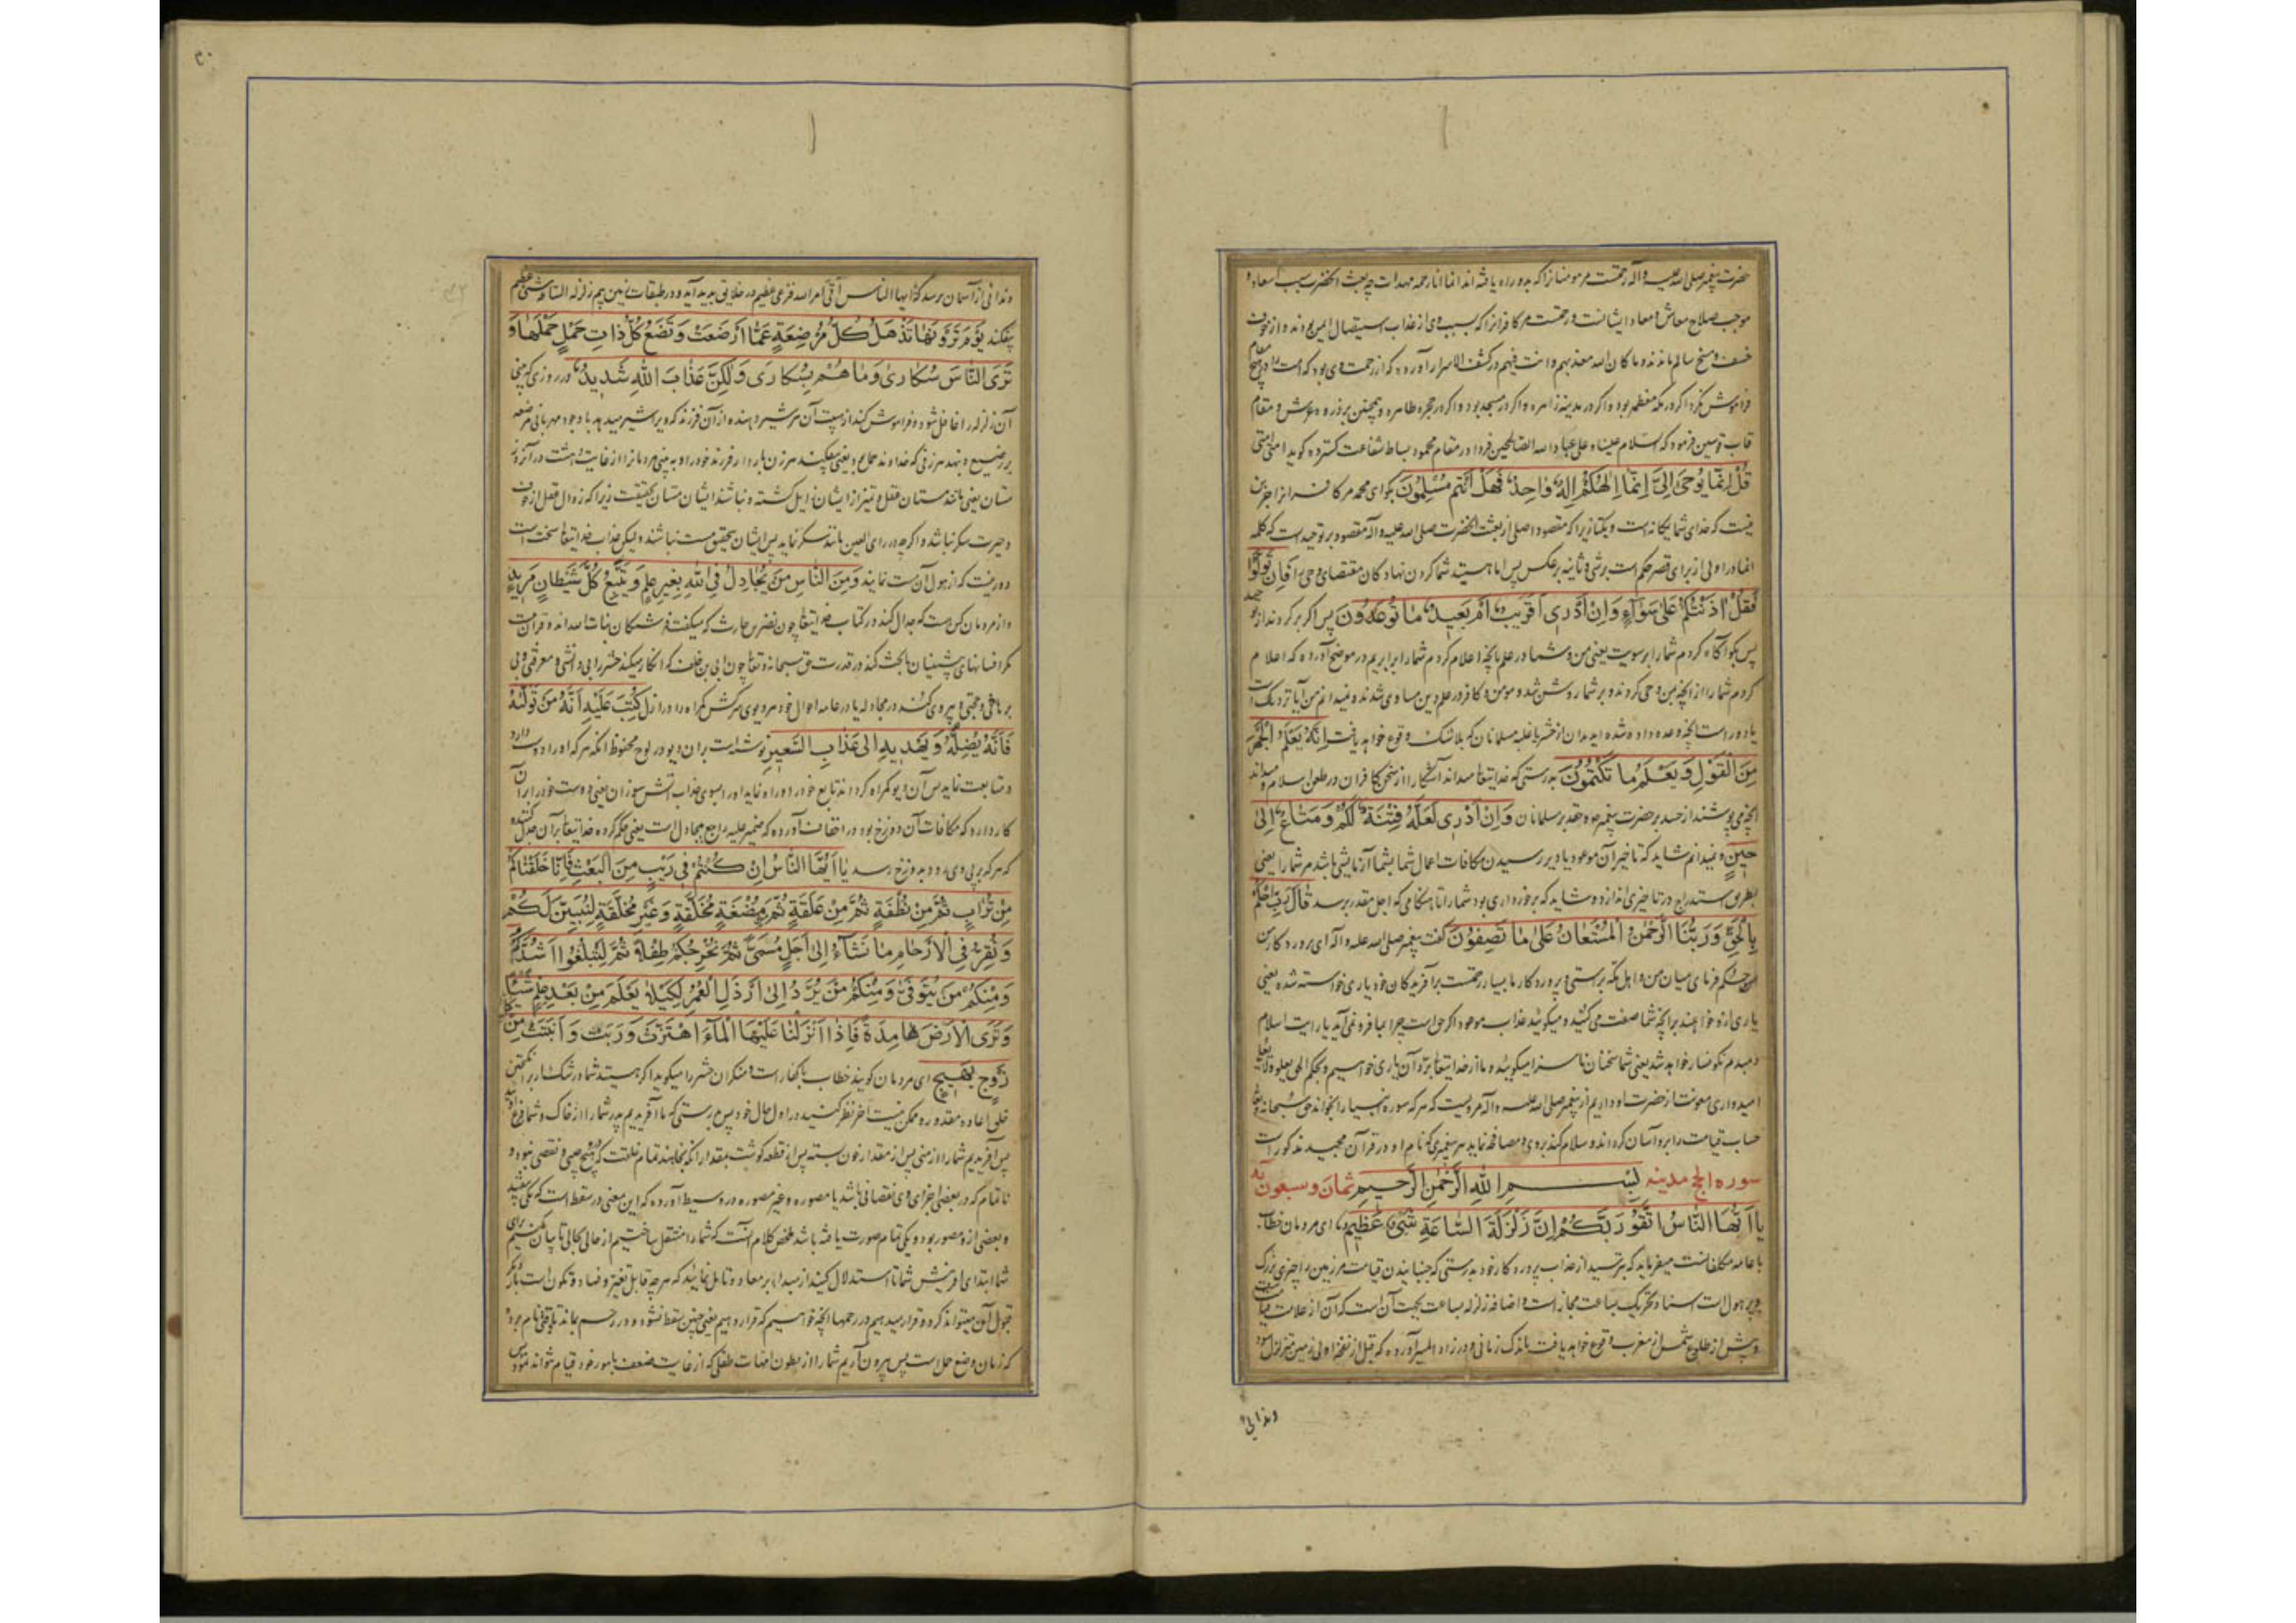 حضرت پیغمبر صلی الله علیه و آله رحمتست مر مومنانرا که بدو راه یافته اند انما انا رحمه مهدات چه بعث آنحضرت سبب اسعاد و
موجب صلاح معاش و معاد ایشانست و رحمتست مر کافرانرا که بسبب وی از عذاب استیصال ایمن بودند و از خوف
خسف و مسخ سالم ماندند و ما کان الله معذبهم و انت فیهم در کشف الاسرار آورده که از رحمت وی بود که امت را در هیچ مقام
فراموش نکرد اگر در مکه معظمه بود و اگر در مدینه زاهره و اگر در مسجد بود و اگر در حجره طاهره و همچنین بر ذروه عرش و مقام
قاب قوسین فرمود که السلام علینا و علی عباد الله الصالحین فردا در مقام محمود بساط شفاعت گسترده گوید امتی امتی
قُلْ اِنَّمَا يُوحٰى اِلَىَّ اَنَّمَا اِلٰهُكُمْ اِلٰهٌ وَاحِدٌ فَهَلْ اَنْتُمْ مُسْلِمُونَ بگو ای محمد مر کافرانرا جز این
نیست که خدای شما یگانه است و یکتا زیرا که مقصود اصلی از بعثت آنحضرت صلی الله علیه و آله مقصود بر توحید است که کلمه
انما در اولی از برای قصر حکم است بر شی و ثانیه بر عکس پس اما هستید شما گردن نهادگان مقتضای وحی را فَاِنْ تَوَلَّوْا
فَقُلْ اٰذَنْتُكُمْ عَلٰى سَوَاۤءٍ وَاِنْ اَدْرِى اَقَرِيبٌ اَمْ بَعِيدٌ مَا تُوعَدُونَ پس اگر برگردند از توحید
پس بگو آگاه کردم شما را بر سویت یعنی من و شما در علم بآنچه اعلام کردم شما را برابریم در موضح آورده که اعلام
کردم شما را از آنچه بمن وحی کردند و بر شما روشن شد و مومن و کافر در علم دین مساوی شدند و نمیدانم من آیا نزدیک است
یا دور است آنچه وعده داده شده اید بدان از حشر یا غلبه مسلمانان که بلا شک وقوع خواهد یافت اِنَّهُ يَعْلَمُ الْجَهْرَ
مِنَ الْقَوْلِ وَيَعْلَمُ مَا تَكْتُمُونَ بدرستی که خدایتعالی میداند آشکارا از سخن کافران در طعن اسلام و میداند
آنچه می پوشند از حسد بر حضرت پیغمبر و حقد بر مسلمانان وَاِنْ اَدْرِى لَعَلَّهُ فِتْنَةٌ لَكُمْ وَمَتَاعٌ اِلٰى
حِينٍ و نمیدانم شاید که تاخیر آن موعود یا دیر رسیدن مکافات اعمال شما بشما آزمایشی باشد مر شما را یعنی
بطریق استدراج در تاخیری اندازد و شاید که برخورداری بود شما را تا هنگامی که اجل مقدر برسد قَالَ رَبِّ احْكُمْ
بِالْحَقِّ وَرَبُّنَا الرَّحْمٰنُ الْمُسْتَعَانُ عَلٰى مَا تَصِفُونَ گفت پیغمبر صلی الله علیه و آله ای پروردگار من
حکم فرمای میان من و اهل مکه براستی و پروردگار ما بسیار رحمتست بر آفریدگان خود یاری خواسته شده یعنی
یاری ازو خواهند بر آنچه شما صفت می کنید و میگویید عذاب موعود اگر حق است چرا بما فرو نمی آید یا رایت اسلام
دمبدم نگونسار خواهد شد یعنی شما سخنان ناسزا میگویید و ما از خدایتعالی بر رد آن یاری خواهیم و بحکم الهی یعلو و لا یعلی
امیدواری معونت از حضرت او داریم از پیغمبر صلی الله علیه و آله مرویست که هر که سوره انبیا را بخواند حق سبحانه و تعالی
حساب قیامت را برو آسان گرداند و سلام کند بر وی و مصافحه نماید هر پیغمبری که نام او در قرآن مجید مذکور است
سورة الحج مدنیة بِسْمِ اللّٰهِ الرَّحْمٰنِ الرَّحِيمِ ثمان و سبعون آیه
يَا اَيُّهَا النَّاسُ اتَّقُوا رَبَّكُمْ اِنَّ زَلْزَلَةَ السَّاعَةِ شَىْءٌ عَظِيمٌ ای مردمان خطاب
با عامه مکلفانست میفرماید که بترسید از عذاب پروردگار خود بدرستی که جنبانیدن قیامت مر زمین را چیزی بزرگ
و پر هول است اسناد تحریک بساعت مجاز است و اضافه زلزله بساعت بجهت آن است که آن از علامت قیامت
و پیش از طلوع شمس از مغرب وقوع خواهد یافت باندک زمانی و در زاد المسیر آورده که قبل از نفخه اولی زمین متزلزل شود
وندایی
وندائی از آسمان برسد که یا ایها الناس اتی امر الله فزعی عظیم در خلایق پدید آید و در طبقات زمین بیم زلزله الساعة شیء عظیم
بیفکند يَوْمَ تَرَوْنَهَا تَذْهَلُ كُلُّ مُرْضِعَةٍ عَمَّا اَرْضَعَتْ وَتَضَعُ كُلُّ ذَاتِ حَمْلٍ حَمْلَهَا وَ
تَرَى النَّاسَ سُكَارٰى وَمَا هُمْ بِسُكَارٰى وَلٰكِنَّ عَذَابَ اللّٰهِ شَدِيدٌ در روزی که ببینی
آن زلزله را غافل شود و فراموش کند از هیبت آن هر شیر دهنده از آن فرزند که ویرا شیر میدهد با وجود مهربانی مرضعه
بر رضیع و بنهد هر زنی که خداوند حمل بود یعنی بیفکند هر زن باردار فرزند خود را و به بینی مردمانرا از غایت دهشت در آنروز
مستان یعنی مانند مستان عقل و تمیز از ایشان زایل گشته و نباشند ایشان مستان بحقیقت زیرا که زوال عقل از خوف
و حیرت سکر نباشد و اگر چه در رای العین مانند سکر نماید پس ایشان بتحقیق مست نباشند و لیکن عذاب خدایتعالی سخت است
و مَن که از هول آن مست نمایند وَمِنَ النَّاسِ مَنْ يُجَادِلُ فِى اللّٰهِ بِغَيْرِ عِلْمٍ وَيَتَّبِعُ كُلَّ شَيْطَانٍ مَرِيدٍ
و از مردمان کس است که جدال کند در کتاب خدایتعالی چون نضر بن حارث که میگفت فرشتگان بنات الله اند و قرآن نیست
مگر افسانهای پیشینیان یا بحث کند در قدرت حق سبحانه و تعالی چون ابی بن خلف که انکار میکند حشر را بی دانشی و معرفتی و بی
برهانی و حجتی و پیروی کند در مجادله یا در عامه احوال خود هر دیوی سرکش گمراه را در ازل كُتِبَ عَلَيْهِ اَنَّهُ مَنْ تَوَلَّاهُ
فَاَنَّهُ يُضِلُّهُ وَيَهْدِيهِ اِلٰى عَذَابِ السَّعِيرِ نوشته است بر آن دیو در لوح محفوظ آنکه هر که او را دوست دارد
و متابعت نماید پس آن دیو گمراه گرداند تابع خود را و راه نماید او را بسوی عذاب آتش سوزان یعنی دوست خود را بر آن
کار دارد که مکافات آن دوزخ بود در احقاف آورده که ضمیر علیه راجع بمجادل است یعنی حکم کرده خدایتعالی بر آن جدل کننده
که هر که بر پی وی رود بدوزخ رسد يَا اَيُّهَا النَّاسُ اِنْ كُنْتُمْ فِى رَيْبٍ مِنَ الْبَعْثِ فَاِنَّا خَلَقْنَاكُمْ
مِنْ تُرَابٍ ثُمَّ مِنْ نُطْفَةٍ ثُمَّ مِنْ عَلَقَةٍ ثُمَّ مِنْ مُضْغَةٍ مُخَلَّقَةٍ وَغَيْرِ مُخَلَّقَةٍ لِنُبَيِّنَ لَكُمْ
وَنُقِرُّ فِى الْاَرْحَامِ مَا نَشَاۤءُ اِلٰى اَجَلٍ مُسَمًّى ثُمَّ نُخْرِجُكُمْ طِفْلًا ثُمَّ لِتَبْلُغُوا اَشُدَّكُمْ
وَمِنْكُمْ مَنْ يُتَوَفّٰى وَمِنْكُمْ مَنْ يُرَدُّ اِلٰى اَرْذَلِ الْعُمُرِ لِكَيْلَا يَعْلَمَ مِنْ بَعْدِ عِلْمٍ شَيْئًا
وَتَرَى الْاَرْضَ هَامِدَةً فَاِذَا اَنْزَلْنَا عَلَيْهَا الْمَاۤءَ اهْتَزَّتْ وَرَبَتْ وَاَنْبَتَتْ مِنْ كُلِّ
زَوْجٍ بَهِيجٍ ای مردمان گویند خطاب با کفار است و منکران حشر را میگوید اگر هستید شما در شک از برانگیختن
خلق اعاده مقدور و ممکن نیست آخر نظر کنید در اول حال خود پس بدرستی که ما آفریدیم پدر شما را از خاک و شما
پس آفریدیم شما را از منی پس از مقدار خون بسته پس از قطعه گوشت بمقدار آنکه بخایند تمام خلقت که هیچ عیبی و نقصی نبود و
ناتمام که در بعضی اجزای وی نقصانی باشد یا مصوره و غیر مصوره در وسیط آورده که این معنی در سقط است که یکی
و بعضی ازو مصور بود و یکی تمام صورت یافته باشد ملخص کلام آنست که شما را منتقل ساختیم از حالی بحالی تا بیان کنیم برای
شما ابتدای آفرینش شما تا استدلال کنید از مبدا بر معاد و تامل نمایید که هر چه قابل تغیر و فساد و تکون است بار دیگر
قبول آن میتواند کرد و قرار میدهیم در رحمها آنچه خواهیم که قرار دهیم یعنی جنین سقط نشود و در رحم بماند تا وقتی نام برده
که زمان وضع حمل است پس بیرون آریم شما را از بطون امهات طفلی که از غایت ضعف بامور خود قیام نتواند نمود پس